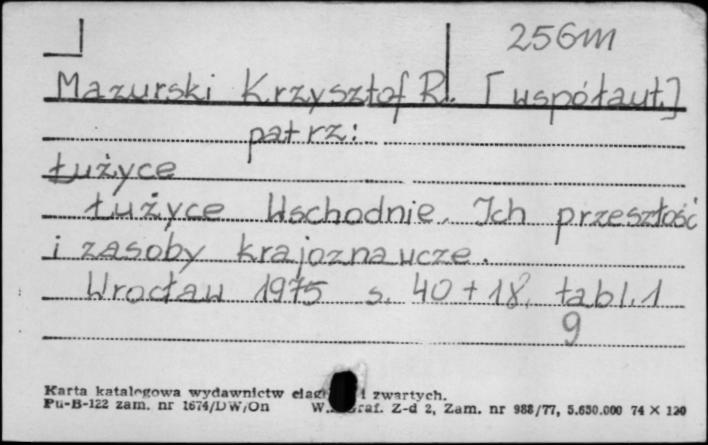 256m
Mazurski Krzysztof R. [współaut.]
patrz:
Łużyce
Łużyce Wschodnie. Ich przeszłość
i zasoby krajoznawcze.
Wrocław 1975 s. 40 + 18, tabl. 1
9
Karta katalogowa wydawnictw i zwartych.
Pu-B-122 zam. nr 1674/DW/On Graf. Z-d 2, Zam. nr 988/77, 5.650.000 74 × 120